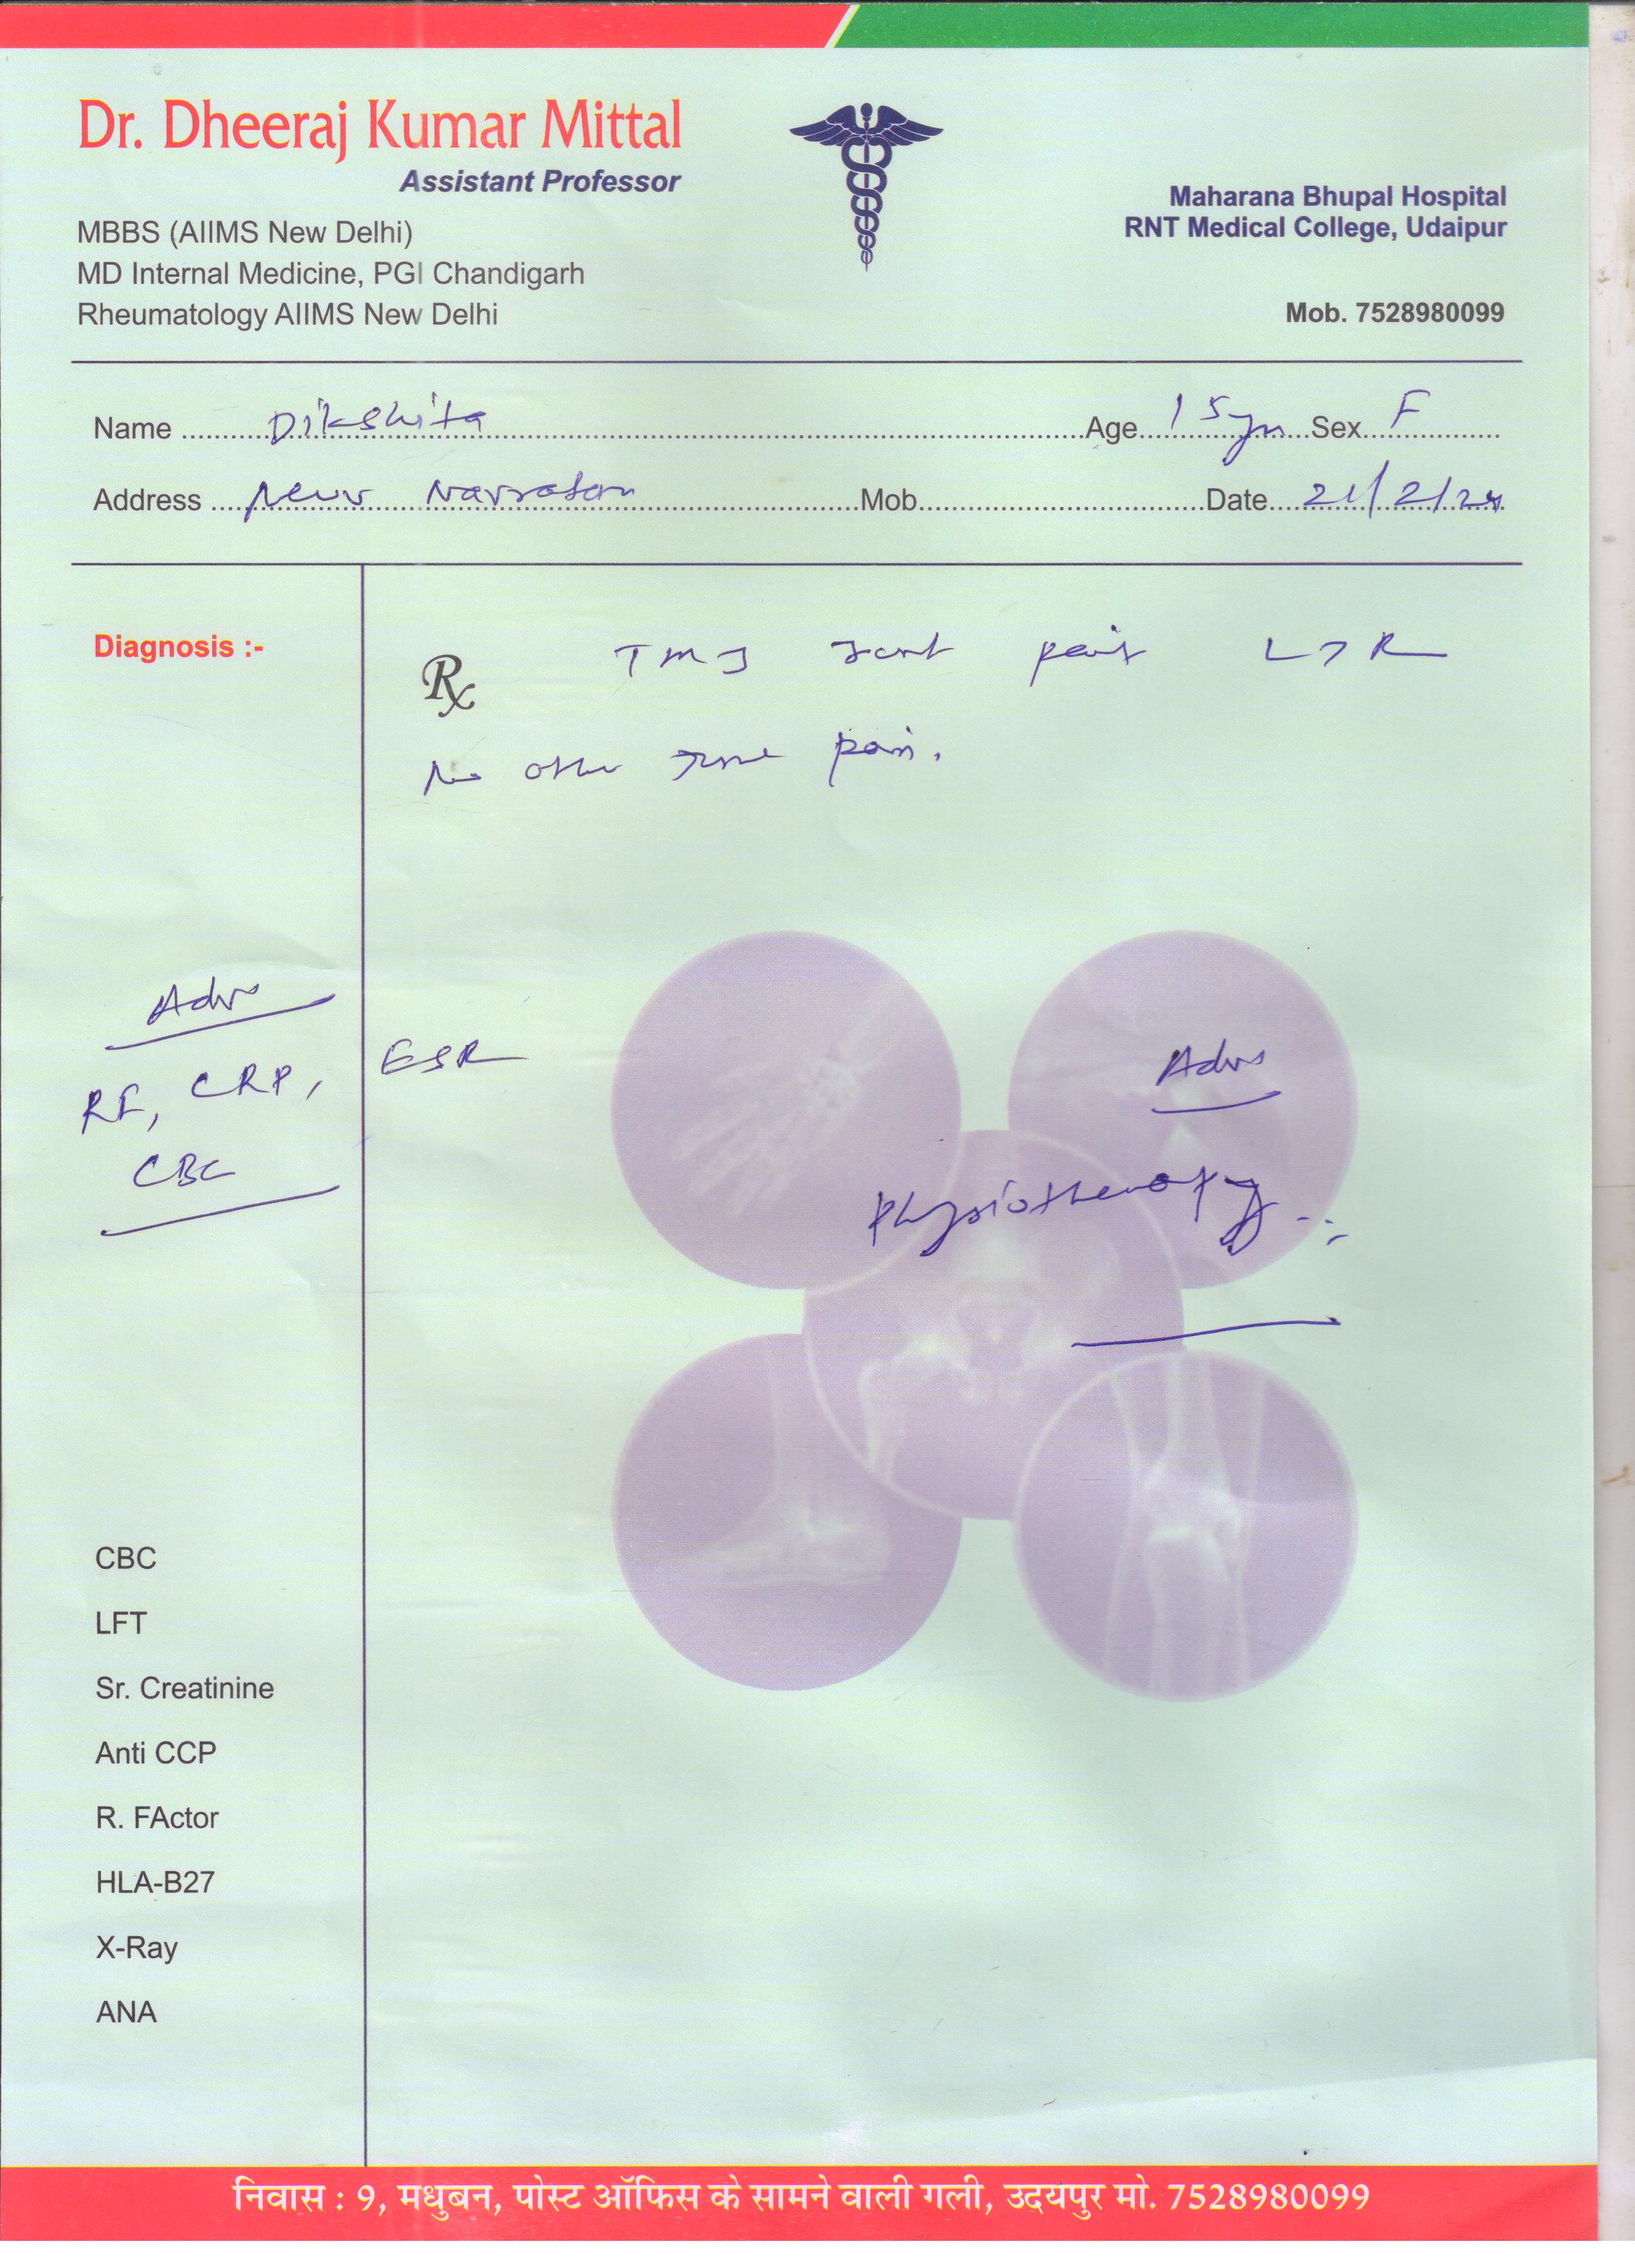 Dr. Dheeraj Kumar Mittal
Assistant Professor
MBBS (AIIMS New Delhi)
MD Internal Medicine, PGI Chandigarh
Rheumatology AIIMS New Delhi
Maharana Bhupal Hospital
RNT Medical College, Udaipur
Mob. 7528980099
Name Dikshita Age 15 yrs Sex F
Address New Navratan Mob. Date 21/2/24
Diagnosis :-
Rx TMJ Joint pain L>R
No other Joint pain.
Adv
RF, CRP, ESR
CBC
Adv
Physiotherapy
CBC
LFT
Sr. Creatinine
Anti CCP
R. FActor
HLA-B27
X-Ray
ANA
निवास : 9, मधुबन, पोस्ट ऑफिस के सामने वाली गली, उदयपुर मो. 7528980099